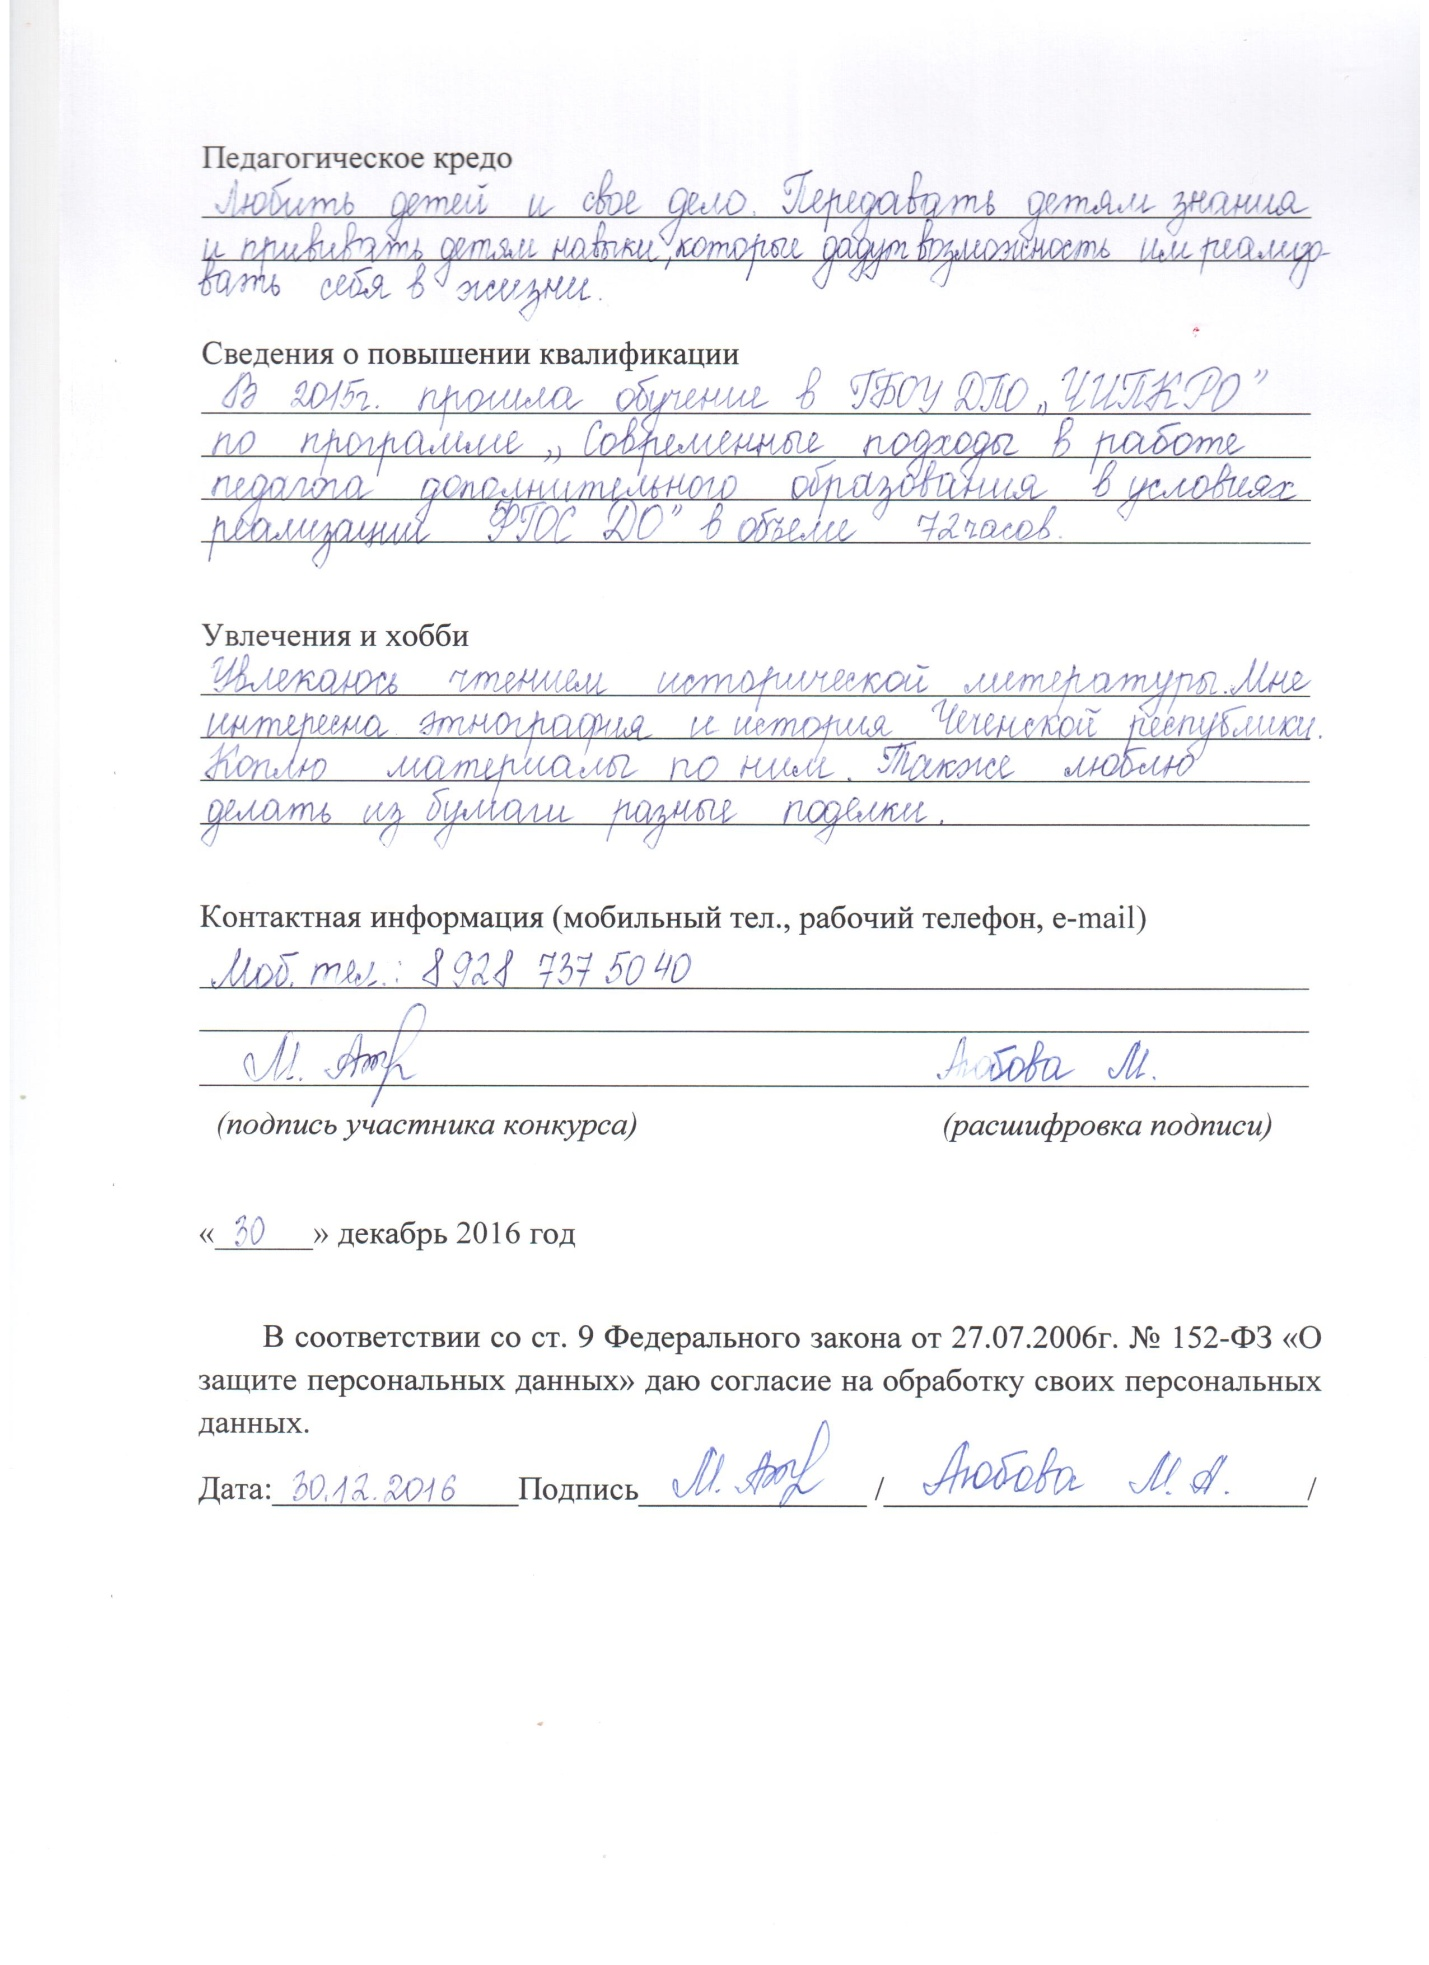 Педагогическое кредо
Любить детей и свое дело. Передавать детям знания
и прививать детям навыки, которые дадут возможность им реализо-
вать себя в жизни.
Сведения о повышении квалификации
В 2015г. прошла обучение в ГБОУ ДПО „ЧИПКРО”
по программе „Современные подходы в работе
педагога дополнительного образования в условиях
реализации ФГОС ДО” в объеме 72 часов.
Увлечения и хобби
Увлекаюсь чтением исторической литературы. Мне
интересна этнография и история Чеченской республики.
Коплю материалы по ним. Также люблю
делать из бумаги разные поделки.
Контактная информация (мобильный тел., рабочий телефон, e-mail)
Моб. тел.: 8 928 737 50 40
М. Аюбова М.
(подпись участника конкурса) (расшифровка подписи)
« 30 » декабрь 2016 год
В соответствии со ст. 9 Федерального закона от 27.07.2006г. № 152-ФЗ «О
защите персональных данных» даю согласие на обработку своих персональных
данных.
Дата: 30.12.2016 Подпись М. / Аюбова М. А. /